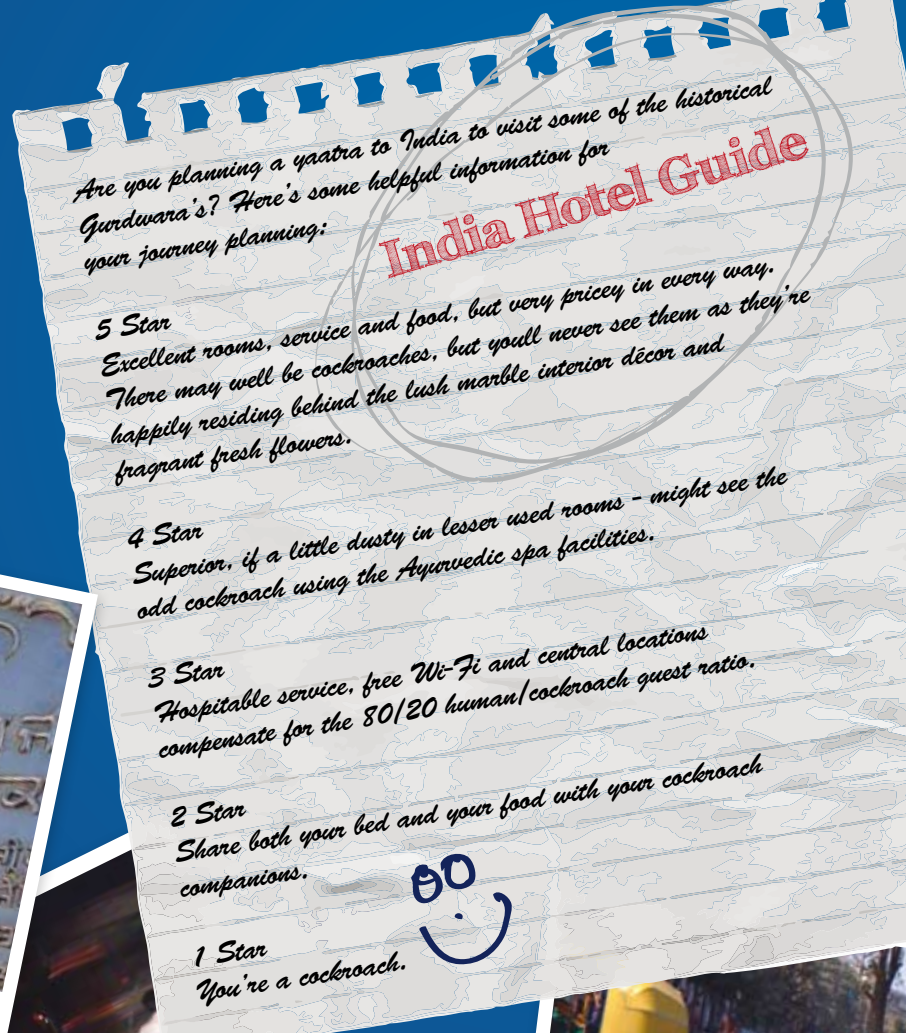 Are you planning a yaatra to India to visit some of the historical
Gurdwara's? Here's some helpful information for
your journey planning:
India Hotel Guide
5 Star
Excellent rooms, service and food, but very pricey in every way.
There may well be cockroaches, but youll never see them as they're
happily residing behind the lush marble interior décor and
fragrant fresh flowers.
4 Star
Superior, if a little dusty in lesser used rooms - might see the
odd cockroach using the Ayurvedic spa facilities.
3 Star
Hospitable service, free Wi-Fi and central locations
compensate for the 80/20 human/cockroach guest ratio.
2 Star
Share both your bed and your food with your cockroach
companions.
1 Star
You're a cockroach.